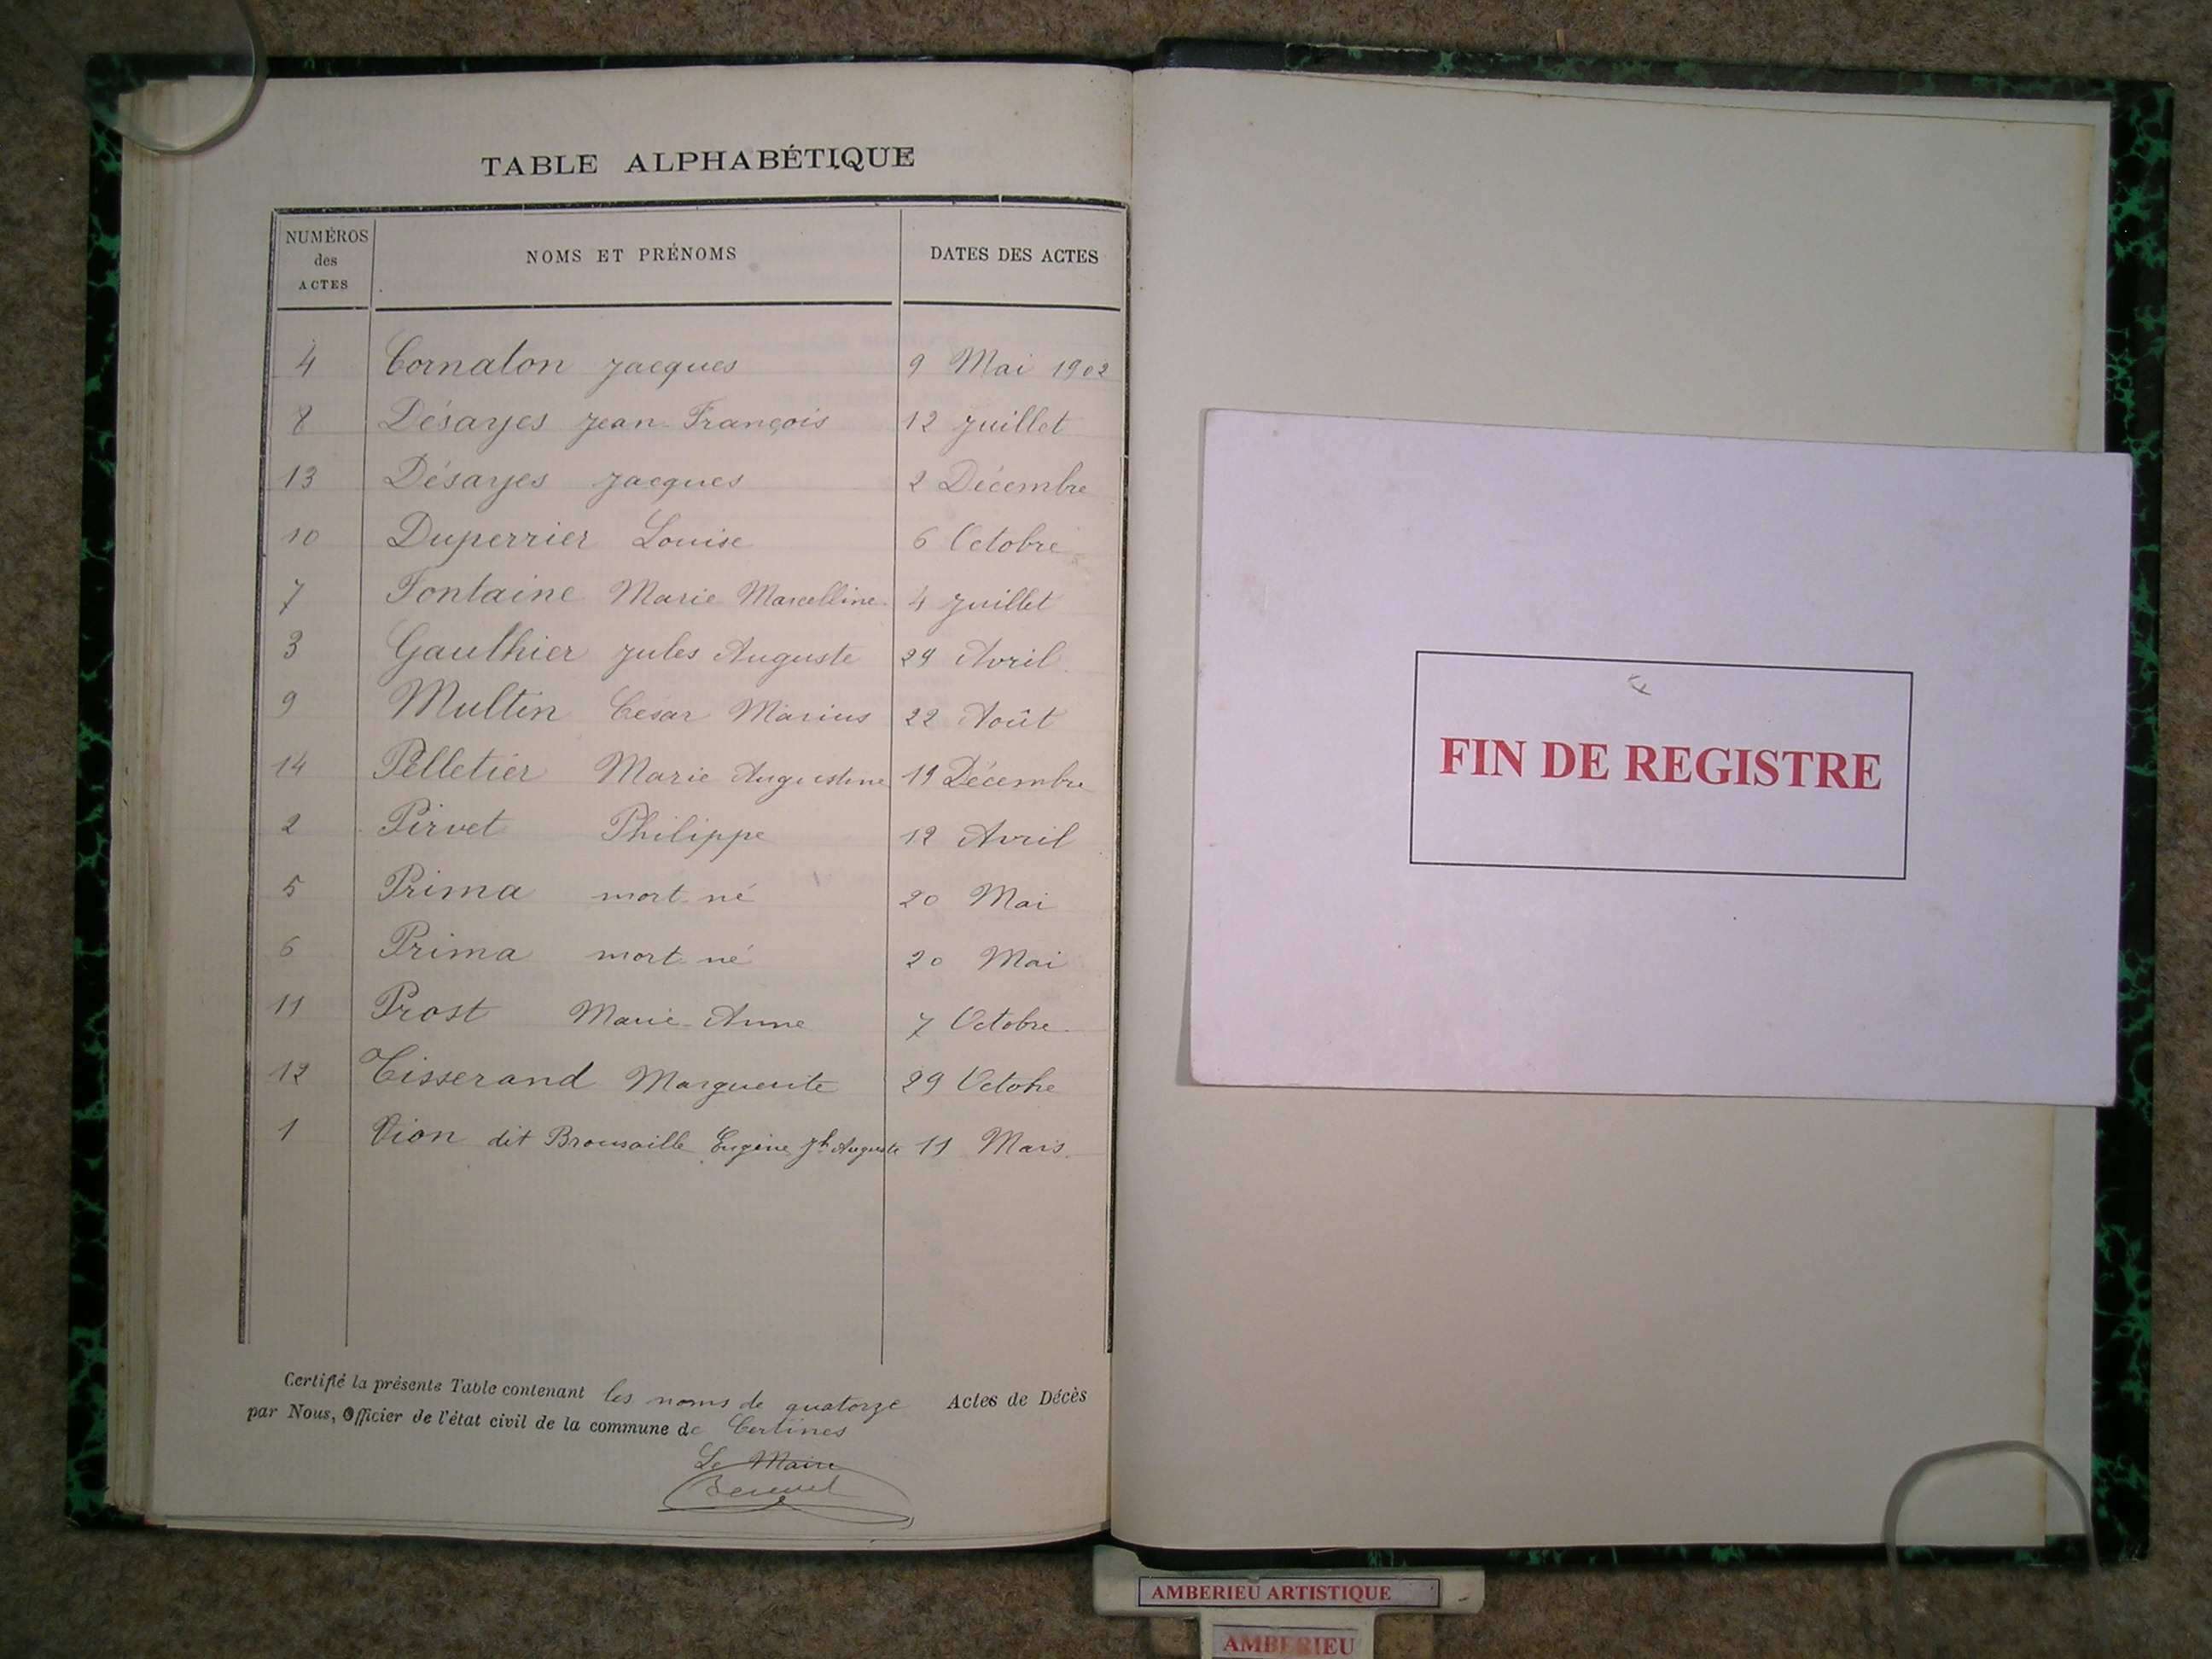 TABLE ALPHABÉTIQUE
NUMÉROS des ACTES NOMS ET PRÉNOMS DATES DES ACTES
4 Cornaton Jacques 9 Mai 1902
8 Désayes Jean-François 12 Juillet
13 Désayes Jacques 2 Décembre
10 Duperrier Louise 6 Octobre
7 Fontaine Marie Marcelline 4 Juillet
3 Gaulhier Jules Auguste 24 Avril
9 Multin César Marius 22 Août
14 Pelletier Marie Augustine 19 Décembre
2 Pirvet Philippe 12 Avril
5 Prima mort-né 20 Mai
6 Prima mort-né 20 Mai
11 Prost Marie-Anne 7 Octobre
12 Tisserand Marguerite 29 Octobre
1 Vion dit Brousaille Eugène Jh Auguste 11 Mars
Certifié la présente Table contenant les noms de quatorze Actes de Décès
par Nous, Officier de l'état civil de la commune de Certines
Le Maire
FIN DE REGISTRE
AMBERIEU ARTISTIQUE
AMBERIEU